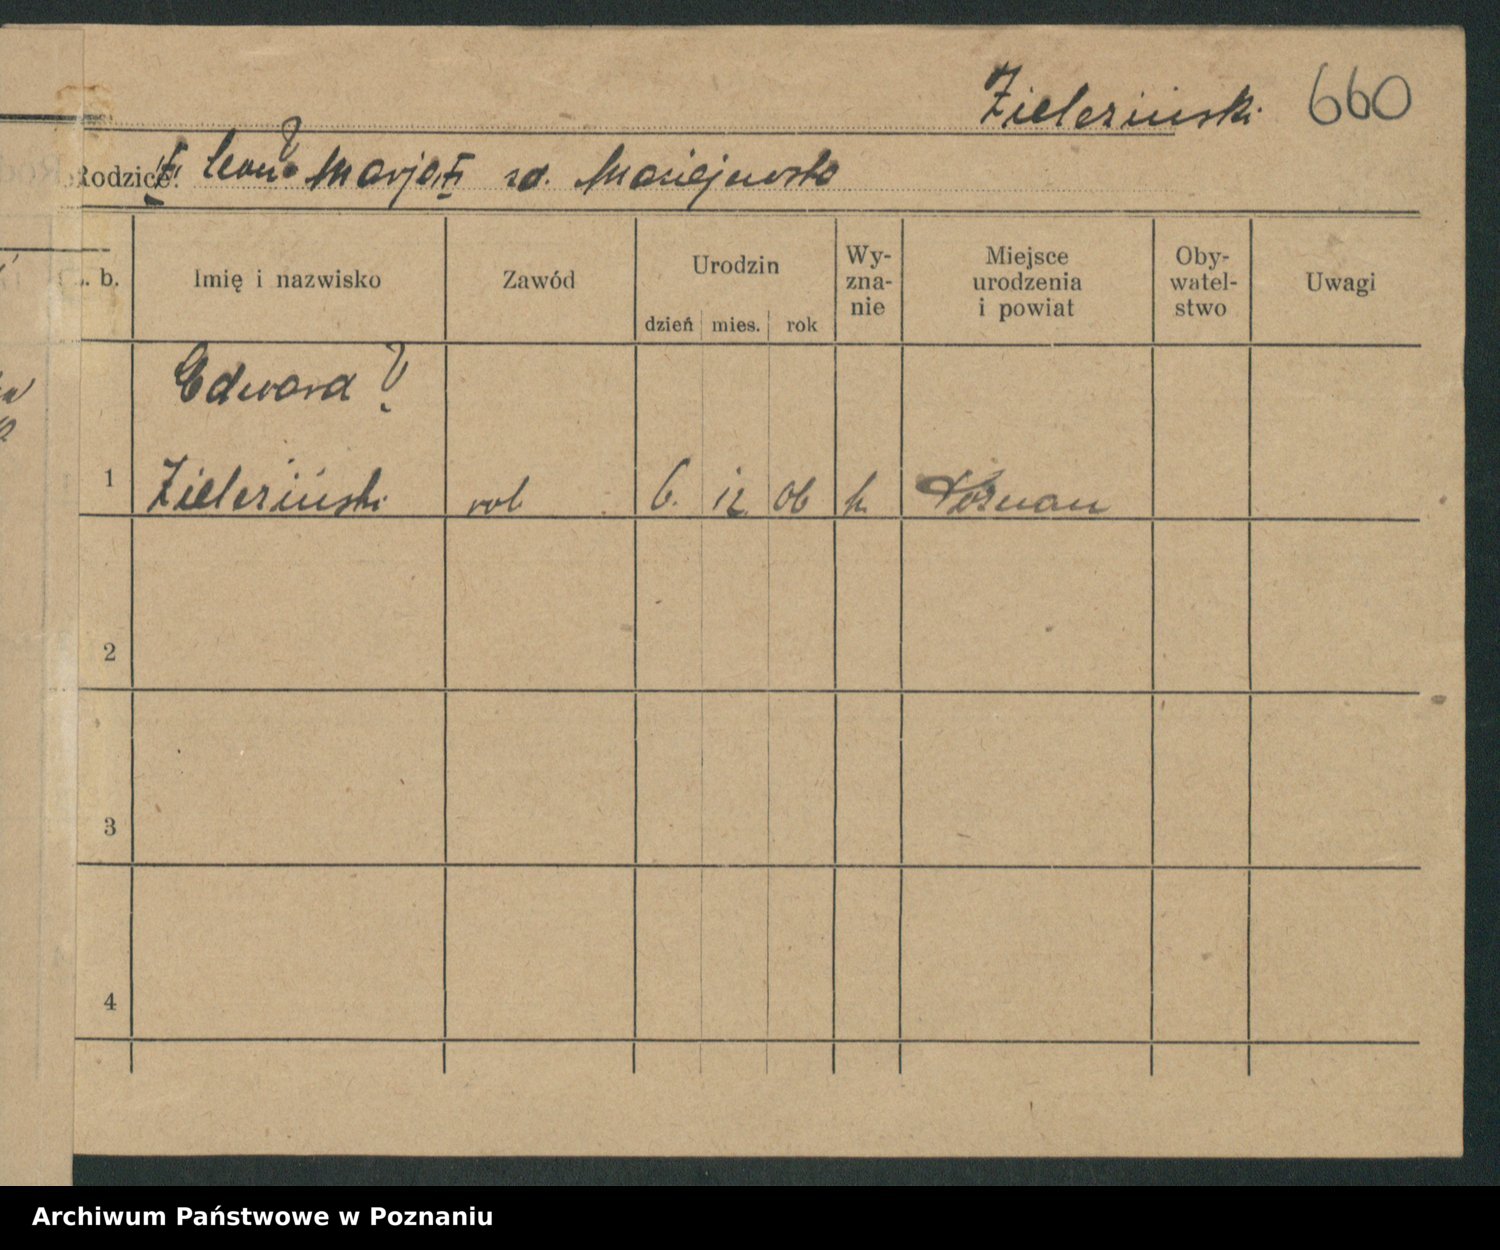 Zieleziński 660
Rodzice: Leon? Marja zd. Maciejewska
L. b. Imię i nazwisko Zawód Urodzin dzień mies. rok Wy-zna-nie Miejsce urodzenia i powiat Oby-watel-stwo Uwagi
Edward?
1 Zieleziński rob 6. 12 06 k. Poznań
2
3
4
Archiwum Państwowe w Poznaniu